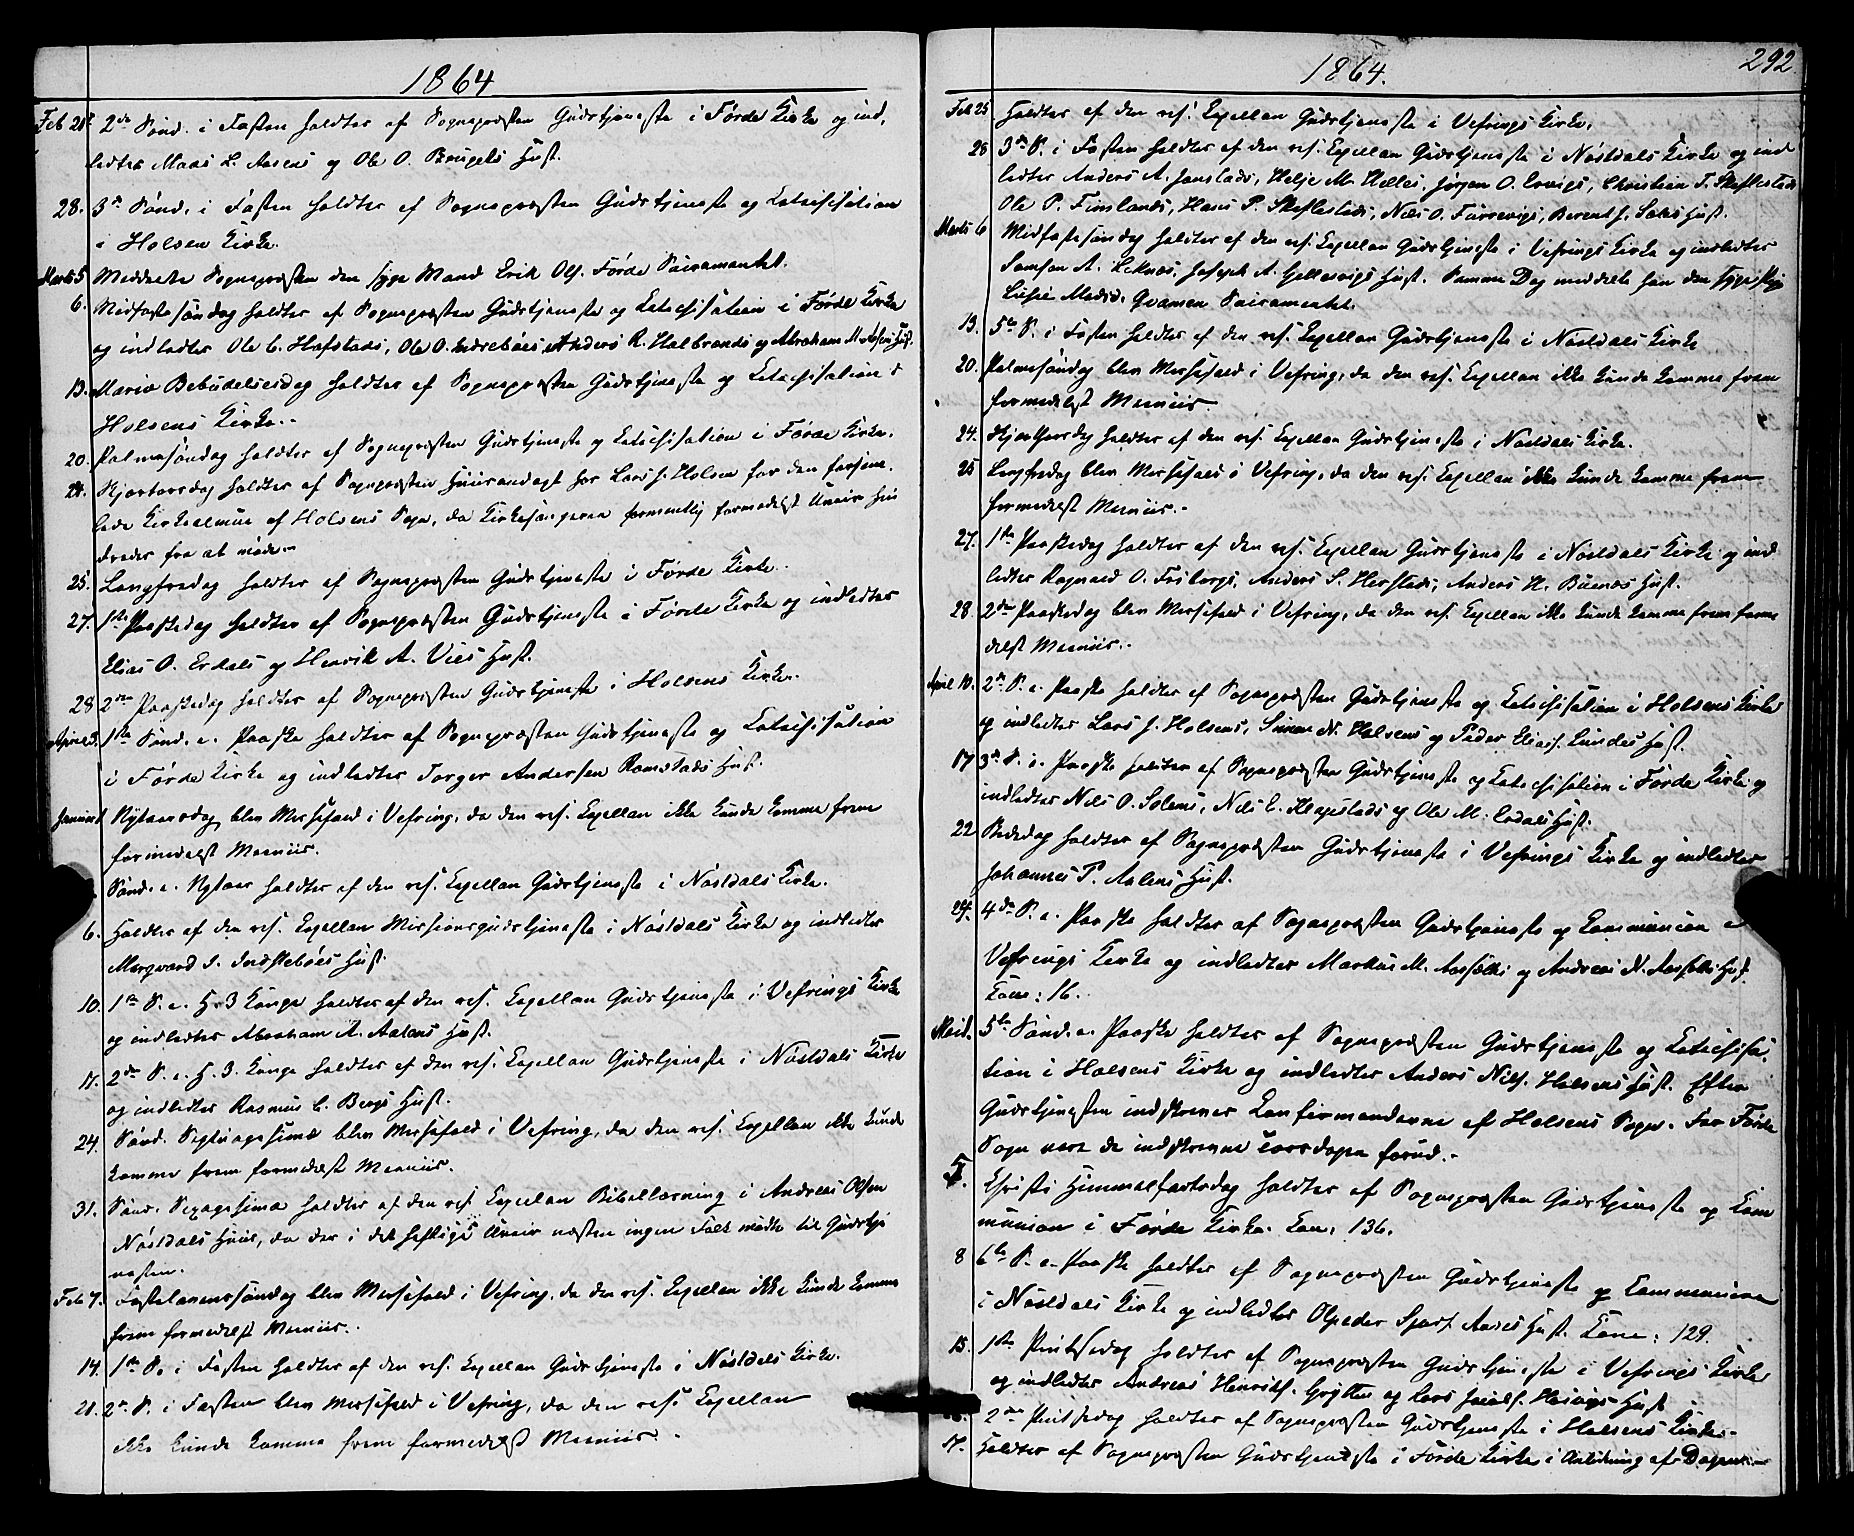 1864
Feb 21. 2den Sønd. i Fasten holdtes af Sognepræsten Gudstjeneste i Førde Kirke og ind,
ledtes Mads L. Aasens og Ole O. Brugets Hust.
28. 3die Sønd. i Fasten holdtes af Sognepræsten Gudstjeneste og Catechisation
i Holsen Kirke.
Marts 5 Meddeelte Sognepræsten den syge Mand Erik Ols. Førde Sacramentet.
6. Midfastesøndag holdtes af Sognepræsten Gudstjeneste og Catechisation i Førde Kirke
og indledtes Ole C. Hafstads, Ole O. Indrebøes, Anders R. Halbrends og Abraham M. Hust.
13. Mariæ Bebudelsesdag holdtes af Sognepræsten Gudstjeneste og Catechisation i
Holsens Kirke.-
20. Palmesøndag holdtes af Sognepræsten Gudstjeneste og Catechisation i Førde Kirke.
24. Skjertorsdag holdtes af Sognepræsten Huusandagt hos Lars J. Holsen for den forsam,
lede Kirkealmue af Holsens Sogn, da Kirkesangeren formentlig formedelst Uveir hin
dredes fra at møde.-
25. Langfredag holdtes af Sognepræsten Gudstjeneste i Førde Kirke.
27. 1ste Paaskedag holdtes af Sognepræsten Gudstjeneste i Førde Kirke og indledtes
Elias O. Erdals og Henrik A. Vies Hust.
28 2den Paaskedag holdtes af Sognepræsten Gudstjeneste i Holsens Kirke.
April 3. 1ste Sønd. e. Paaske holdtes af Sognepræsten Gudstjeneste og Catechisation
i Førde Kirke og indledtes Torger Andersen Ramstads Hust.
Januar 1 Nytaarsdag blev Messefald i Vefring, da den res. Capellan ikke kunde komme frem
formedelst Meeniis.
Sønd. e. Nytaar holdtes af den res. Capellan Gudstjeneste i Nøstdals Kirke.
6. Holdtes af den res. Capellan Missionsgudstjeneste i Nøstdals Kirke og indledtes
Margvard S. Indstebøes Hust.
10. 1ste S. e. H. 3 Konge holdtes af den res. Capellan Gudstjeneste i Vefrings Kirke
og indledtes Abraham A. Aalens Hust.
17. 2den S. e. H. 3. Konge holdtes af den res. Capellan Gudstjeneste i Nøstdals Kirke
og indledtes Rasmus C. Bergs Hust.
24. Sønd. Septuagesima blev Messefald i Vefring, da den res. Capellan ikke kunde
komme frem formedelst Meeniis.
31. Sønd. Sexagesima holdtes af den res. Capellan Bibellæsning i Andreas Olsen
Nøstdals Huus, da der i det heftige Uveir næsten ingen Folk mødte til Gudstje
nesten.
Feb 7. Fastelavenssøndag blev Messefald i Vefring, da den res. Capellan ikke kunde komme
frem formedelst Meeniis.
14. 1ste S. i Fasten holdtes af den res. Capellan Gudstjeneste i Nøstdals Kirke.
21. 2den S. i Fasten blev Messefald i Vefring, da den res. Capellan
ikke kunde komme frem formedelst Meeniis. -
1864.
292
Feb 25 Holdtes af den res. Capellan Gudstjeneste i Vefrings Kirke.
28 3die S. i Fasten holdtes af den res. Capellan Gudstjeneste i Nøstdals Kirke og ind
ledtes Anders A. Jonstads, Helje M. Helles, Jørgen O. Ervigs, Christian T. Steflestads
Ole P. Fimlands, Hans P. Steflestads, Niels O. Furrevigs, Berent J. Hust.
Marts 6 Midfastesøndag holdtes af den res. Capellan Gudstjeneste i Vefrings Kirke og indledtes
Samson A. Leknæs, Joseph A. Gjellevigs Hust. Samme Dag meddelte han den syge Pige
Lissie Madsd. Qvamen Sacramentet.
13. 5te S. i Fasten holdtes af den res. Capellan Gudstjeneste i Nøstdals Kirke
20. Palmesøndag blev Messefald i Vefring, da den res. Capellan ikke kunde komme frem
formedelst Meeniis.
24. Skjertorsdag holdtes af den res. Capellan Gudstjeneste i Nøstdals Kirke.
25 Langfredag blev Messefald i Vefring, da den res. Capellan ikke kunde komme frem
formedelst Meeniis.-
27. 1ste Paaskedag holdtes af den res. Capellan Gudstjeneste i Nøstdals Kirke og ind
ledtes Ragnald O. Friborgs, Anders S. Herstads, Anders H. Buenæs Hust.
28. 2den Paaskedag blev Messefald i Vefring, da den res. Capellan ikke kunde komme frem forme
delst Meeniis.-
April 10. 2den S. e. Paaske holdtes af Sognepræsten Gudstjeneste og Catechisation i Holsens Kirke
og indledtes Lars J. Holsens, Simon N. Holsens og Peder Elias. Lundes Hust.
17 3die S. e. Paaske holdtes af Sognepræsten Gudstjeneste og Catechisation i Førde Kirke og
indledtes Niels O. Solems, Niels C. Hopstads og Ole M. Erdals Hust.
22 Bededag holdtes af Sognepræsten Gudstjeneste i Vefrings Kirke og indledtes
Johannes P. Aalens Hust.
24. 4de S. e. Paaske holdtes af Sognepræsten Gudstjeneste og Communion i
Vefrings Kirke og indledtes Markus M. og Andreas N. Hust.
Com: 16.
Mai 1. 5te Sønd. e. Paaske holdtes af Sognepræsten Gudstjeneste og Catechisa,
tion i Holsens Kirke og indledtes Anders Nils. Holsens Hust. Efter
Gudstjenesten indskreves Confirmanderne af Holsens Sogn. For Førde
Sogn vare de indskrevne Torsdagen forud.-
5. Christi Himmelfartsdag holdtes af Sognepræsten Gudstjeneste og Com
munion i Førde Kirke. Com. 136.
8 6te S. e. Paaske holdtes af Sognepræsten Gudstjeneste og Communion
i Nøstdals Kirke og indledtes Olpeder Hust. Com: 129.
15. 1ste Pintsedag holdtes af Sognepræsten Gudstjeneste i Vefrings Kirke
og indledtes Andreas Henriks. Grytten og Lars Hust
16. 2den Pintsedag holdtes af Sognepræsten Gudstjeneste i Holsens Kirke.-
17. Holdtes af Sognepræsten Gudstjeneste i Førde Kirke i Anledning af Dagen.-